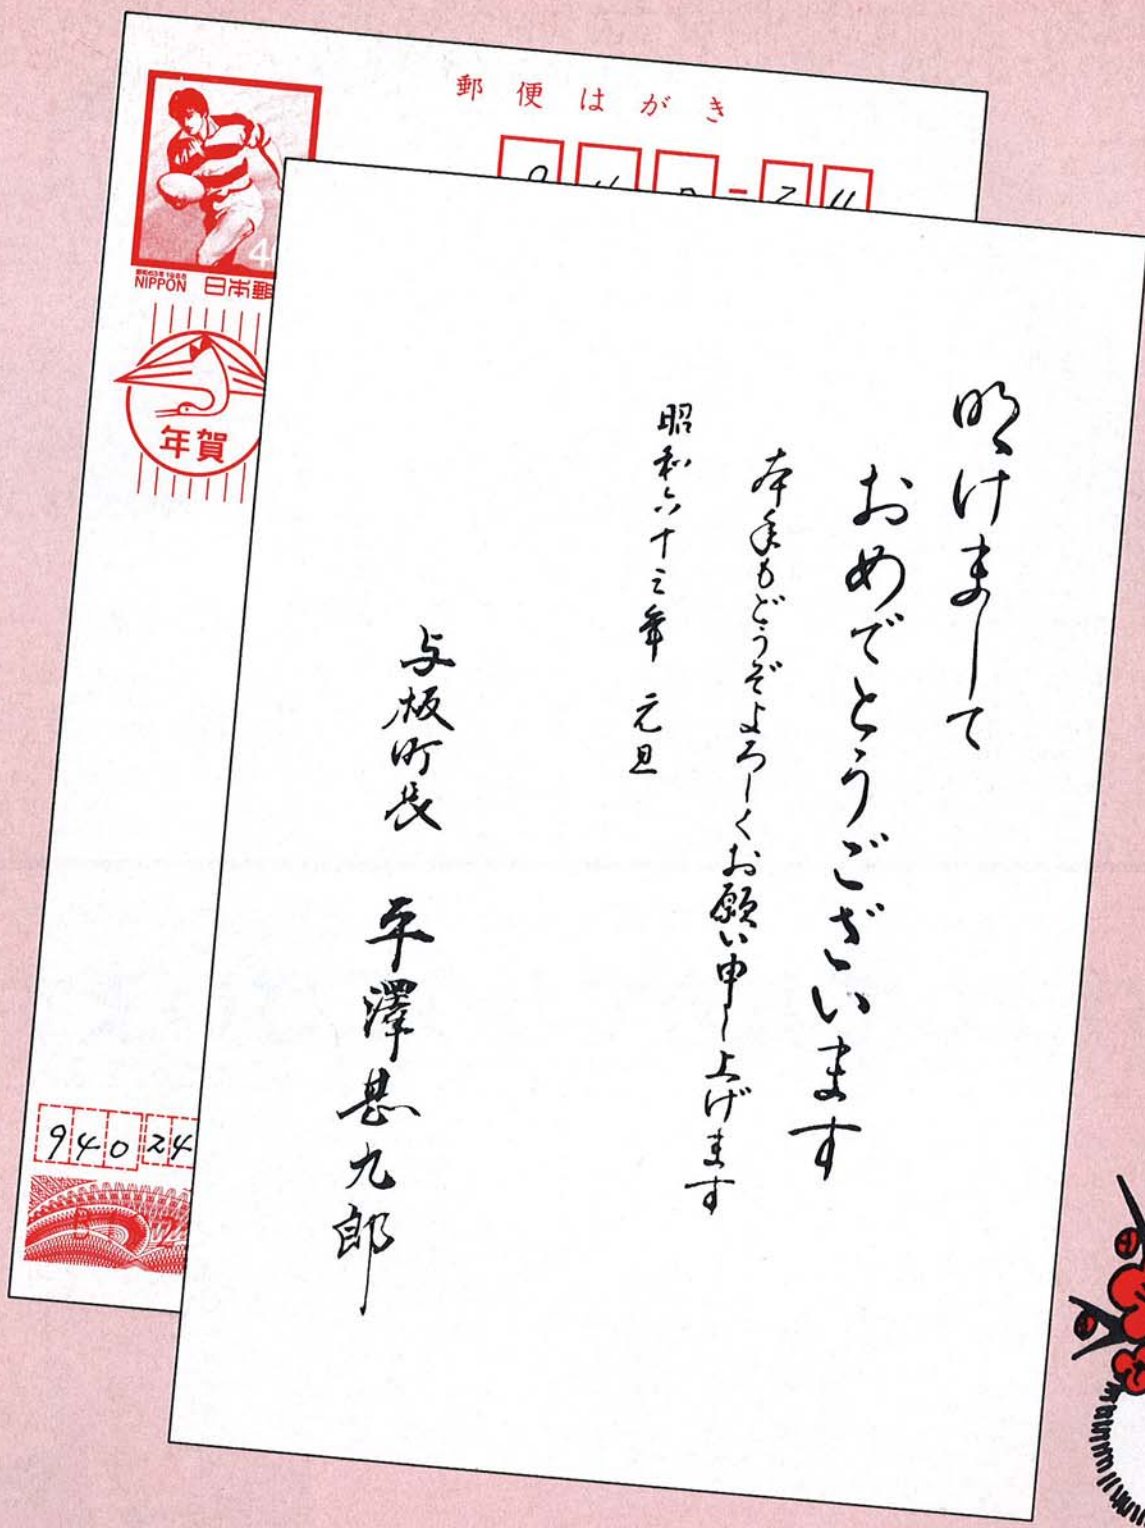 郵便はがき
NIPPON 日本郵
年賀
940 24
明けまして
おめでとうございます
本年もどうぞよろしくお願い申し上げます
昭和六十三年 元旦
与板町長 平澤甚九郎